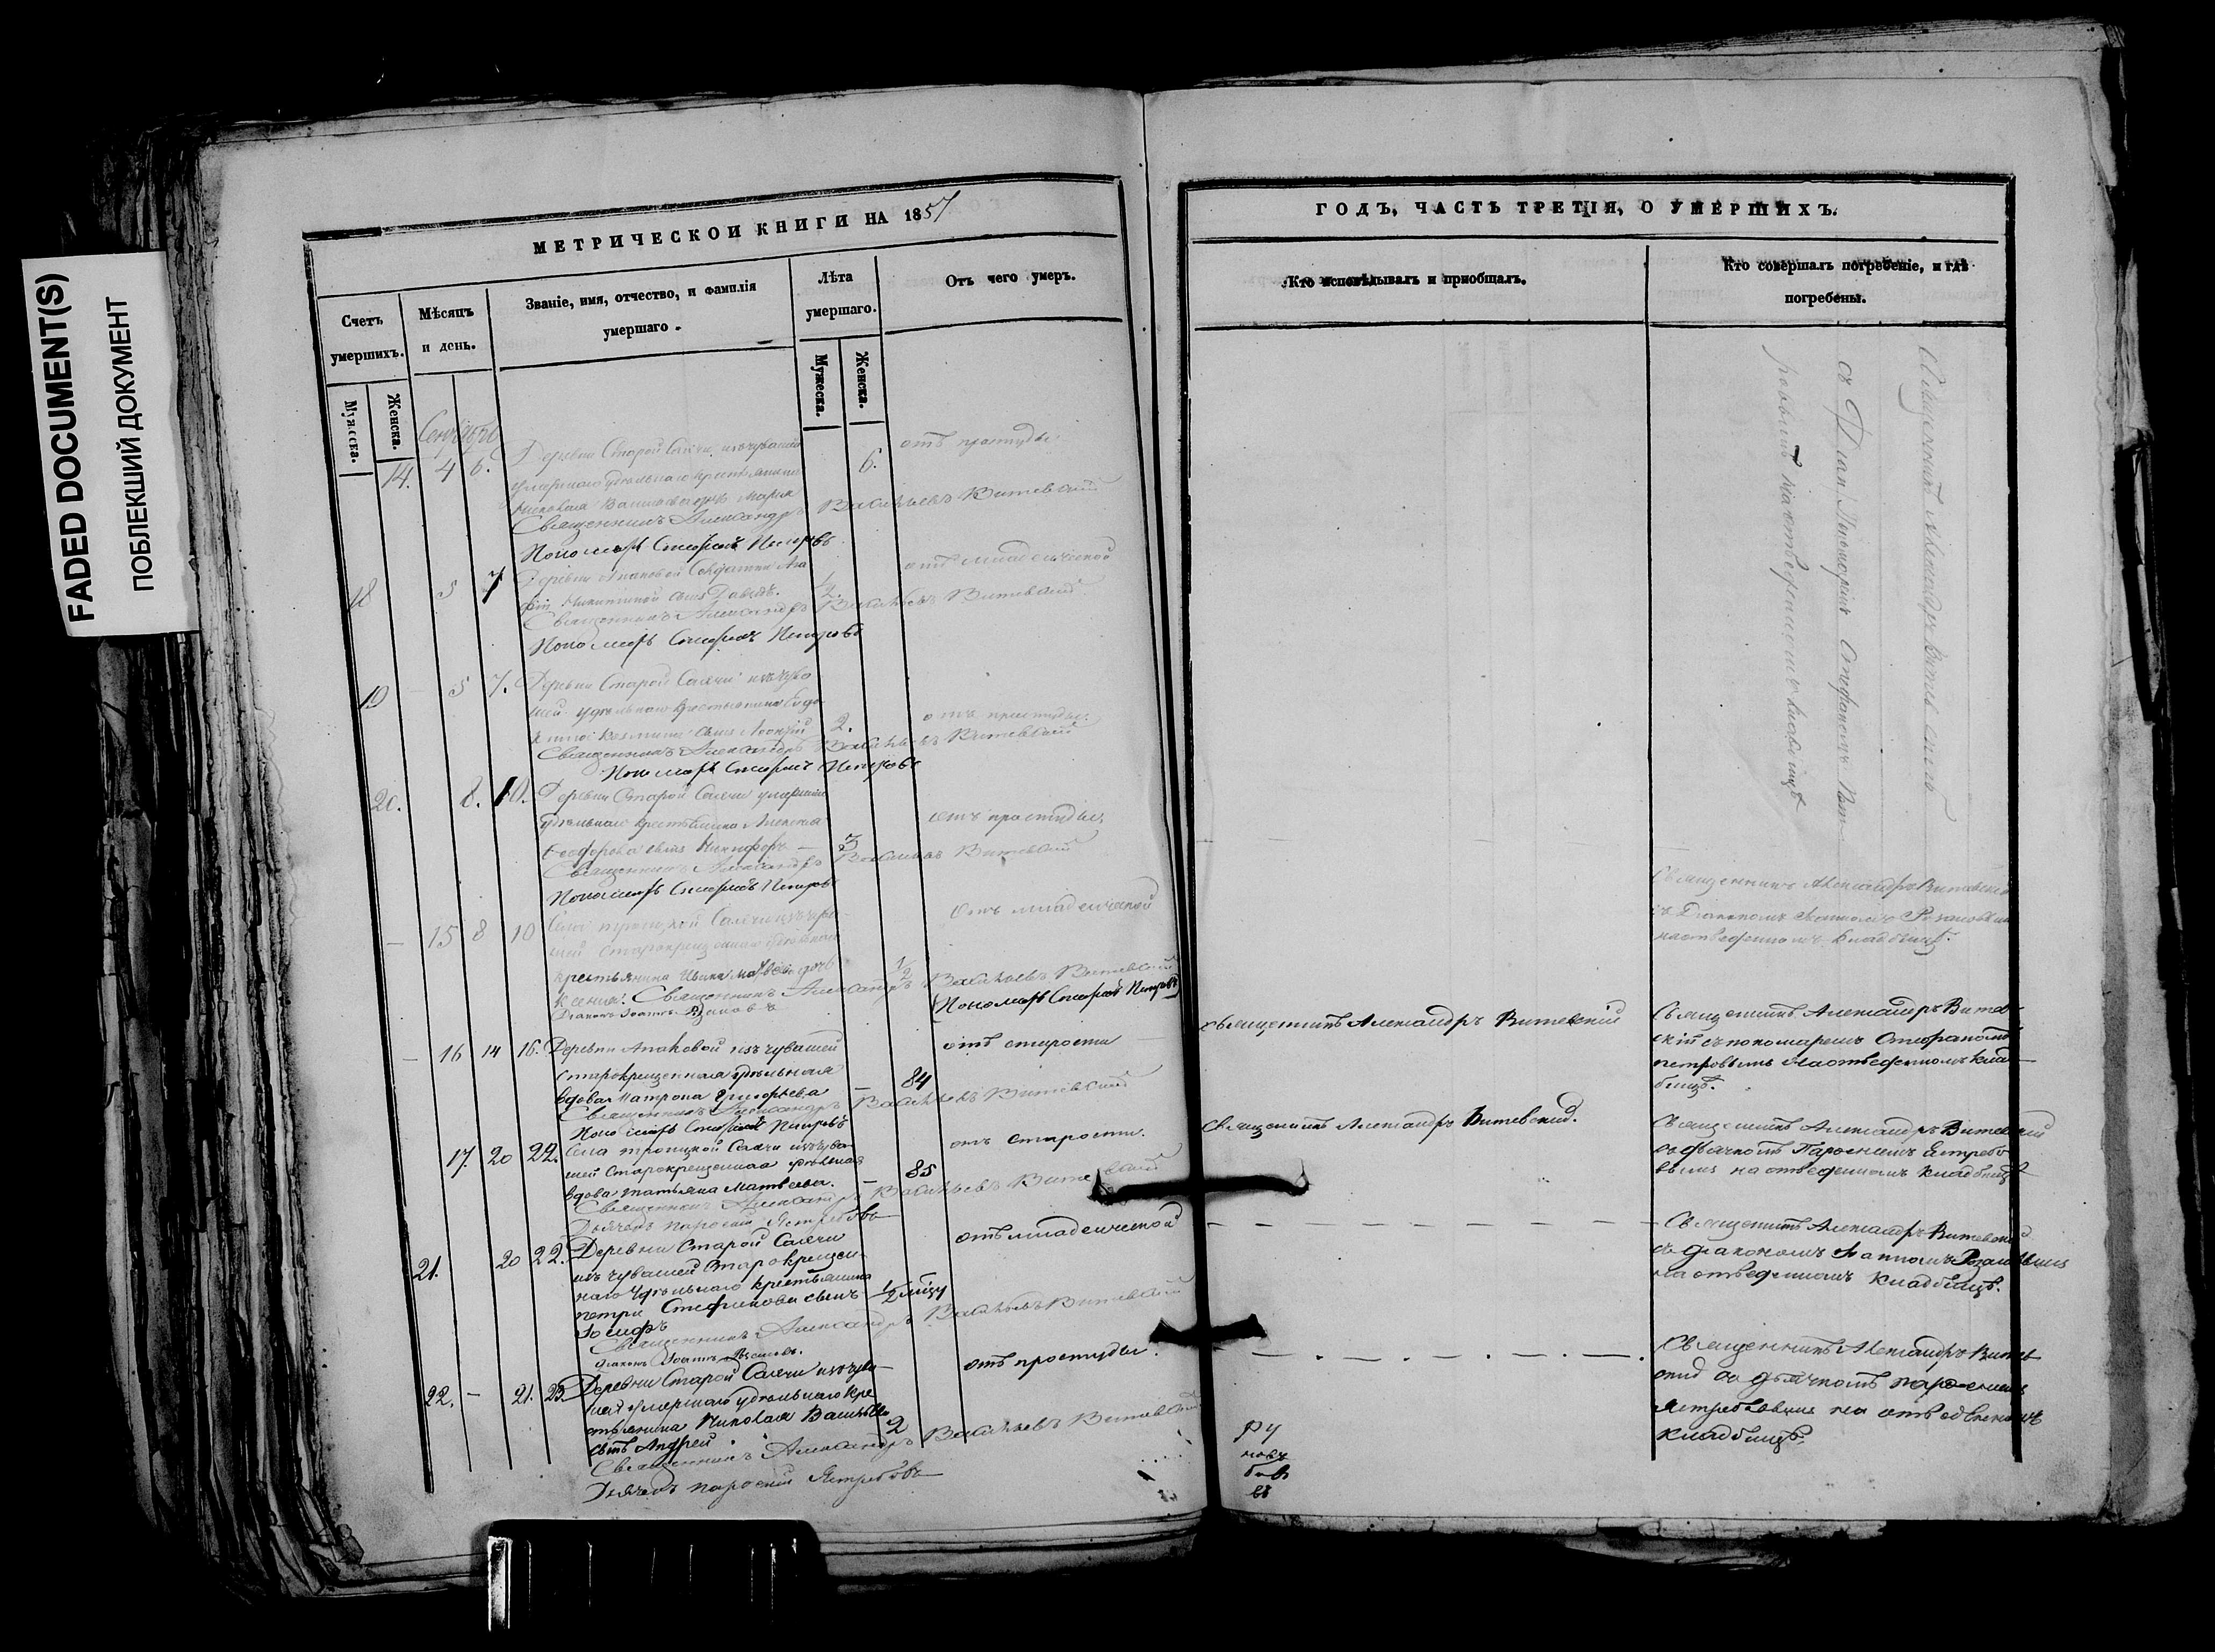 FADED DOCUMENT(S)
ПОБЛЕКШИЙ ДОКУМЕНТ
МЕТРИЧЕСКОЙ КНИГИ НА 1857
Счетъ умершихъ.
Мужеска.
Женска.
Мѣсяцъ и день.
Званіе, имя, отчество, и фамилія умершаго.
Лѣта умершаго.
Мужеска.
Женска.
Отъ чего умеръ.
14. 4 6.
Деревни Старой Салчи изъ чувашъ 6. отъ простуды
умершаго удѣльнаго крестьянина
Васильева дочь Марія
Священникъ Александръ Васильевъ Витевскій
Пономарь Стефанъ Петровъ
18 5 7 Деревни Апаковой отъ младенческой
сынъ Давидъ. 1/2.
Священникъ Александръ Васильевъ Витевскій
Пономарь Стефанъ Петровъ
19 5 7. Деревни Старой Салчи изъ чува
шей удѣльнаго крестьянина
сынъ 2. отъ простуды.
Священникъ Александръ Васильевъ Витевскій
Пономарь Стефанъ Петровъ
20. 8. 10. Деревни Старой Салчи умершаго
удѣльнаго крестьянина Алексѣя отъ простуды
Ѳеодорова сынъ Никифоръ — 3
Священникъ Александръ Васильевъ Витевскій
Пономарь Стефанъ Петровъ
— 15 8 10 Села Троицкой Салчи изъ чува отъ младенческой
шей старокрещеннаго удѣльнаго
крестьянина Ивана Матвѣева дочь 1/2
Ксенія. Священникъ Александръ Васильевъ Витевскій
Діаконъ Іоаннъ Пономарь Стефанъ Петровъ
— 16 14 16. Деревни Апаковой изъ чувашей отъ старости —
старокрещенная удѣльная
вдова Матрона Григорьева — 84
Священникъ Александръ Васильевъ Витевскій
Пономарь Стефанъ Петровъ
17. 20 22. Села Троицкой Салчи изъ чува отъ старости.
шей старокрещенная удѣльная
вдова Татьяна Матвѣева. — 85
Священникъ Александръ Васильевъ Витевскій
Дьячекъ Парѳеній Ястребовъ
21. 20 22. Деревни Старой Салчи отъ младенческой
изъ чувашей старокрещен
наго удѣльнаго крестьянина
Петра Стефанова сынъ 1/2
Іосифъ
Священникъ Александръ Васильевъ Витевскій
Діаконъ Іоаннъ
22. — 21. 23. Деревни Старой Салчи изъ чува отъ простуды.
шей умершаго удѣльнаго кре
стьянина Николая Васильева
сынъ Андрей 2
Священникъ Александръ Васильевъ Витевскій
Дьячекъ Парѳеній Ястребовъ
ГОДЪ, ЧАСТЬ ТРЕТІЯ, О УМЕРШИХЪ.
Кто исповѣдывалъ и пріобщалъ.
Кто совершалъ погребеніе, и гдѣ погребены.
Священникъ Александръ Витевскій
съ Пономаремъ Стефаномъ Пет
ровымъ на отведенномъ кладбищѣ
Священникъ Александръ Витевскій
съ Діакономъ Іоанномъ
на отведенномъ кладбищѣ.
Священникъ Александръ Витевскій
Священникъ Александръ Витев
скій съ пономаремъ Стефаномъ
Петровымъ на отведенномъ клад
бищѣ.
Священникъ Александръ Витевскій.
Священникъ Александръ Витевскій
съ дьячкомъ Парѳеніемъ Ястребо
вымъ на отведенномъ кладбищѣ
Священникъ Александръ Витевскій
съ діакономъ Іоанномъ
на отведенномъ кладбищѣ.
Священникъ Александръ Витев
скій съ дьячкомъ Парѳеніемъ
Ястребовымъ на отведенномъ
кладбищѣ.